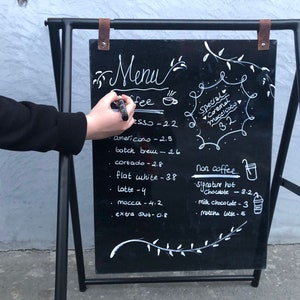 Menu
coffee
espresso - 2.2
americano - 2.5
batch brew - 2.6
cortado - 2.8
flat white - 3.8
latte - 4
mocca - 4.2
extra shot - 0.8
special
3.2
non coffee
signature hot
chocolate - 3.2
milk chocolate - 3
matcha latte - 5